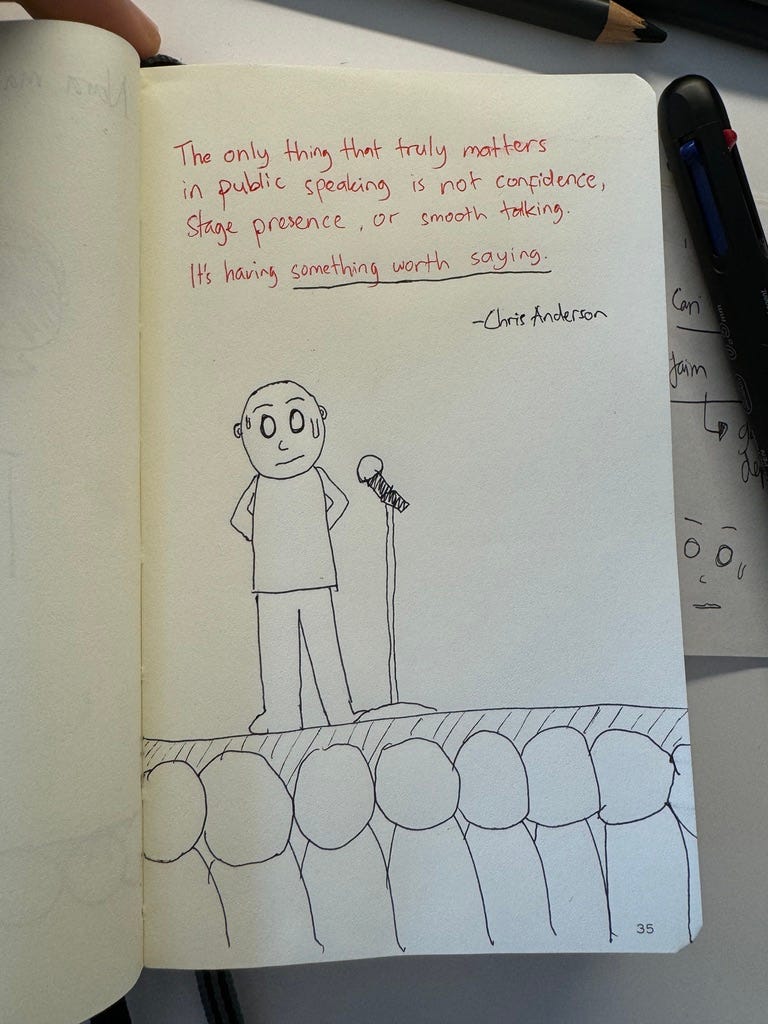 The only thing that truly matters
in public speaking is not confidence,
stage presence, or smooth talking.
It's having something worth saying.
-Chris Anderson
Cari
35